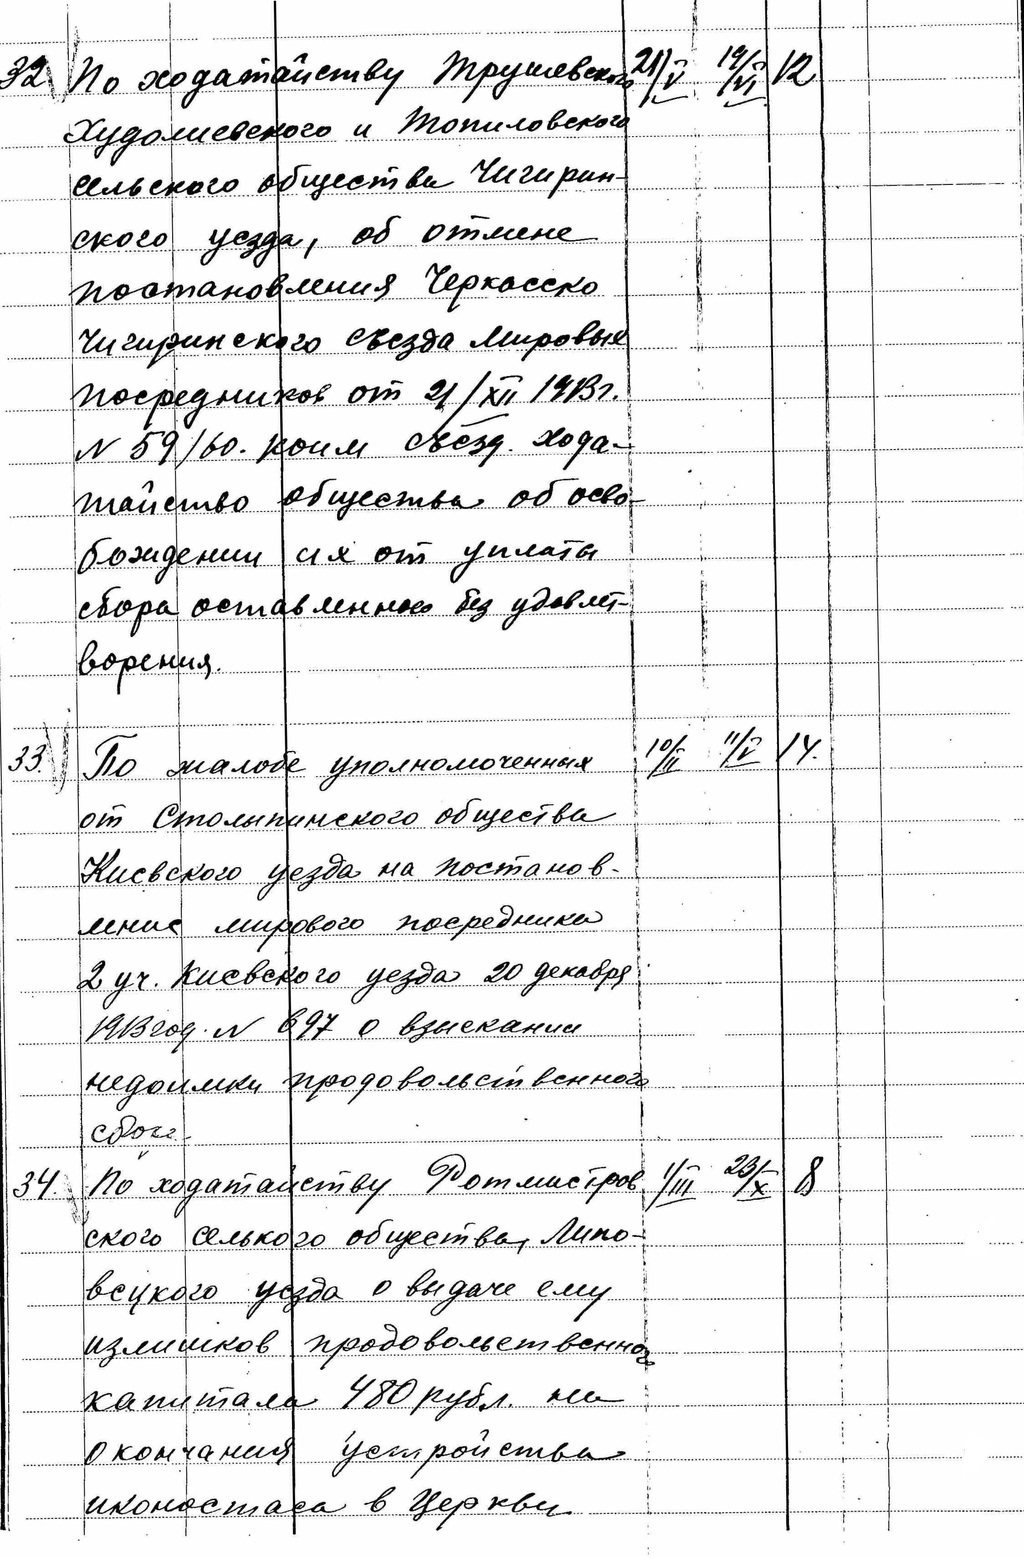 32 По ходатайству Трушевского 21/V 19/VI 12
Худолиевского и Топиловского
сельского общества Чигирин-
ского уезда, об отмене
постановления Черкасско
Чигиринского съезда мировых
посредников от 21/XII 1913г.
N 59/60. коим съезд. хода-
тайство общества об осво-
бождении их от уплаты
сбора оставленного без удовлет-
ворения.
33. По жалобе уполномоченных 10/II 11/V 14.
от Столыпинского общества
Киевского уезда на постанов-
ление мирового посредника
2 уч. Киевского уезда 20 декабря
1913 год. N 697 о взыскании
недоимки продовольственного
34. По ходатайству Ротмистров 1/III 23/X 8
ского селького общества, Липо-
вецкого уезда о выдаче ему
излишков продовольственног
капитала 480 рубл. на
окончания устройства
иконостаса в Церкви